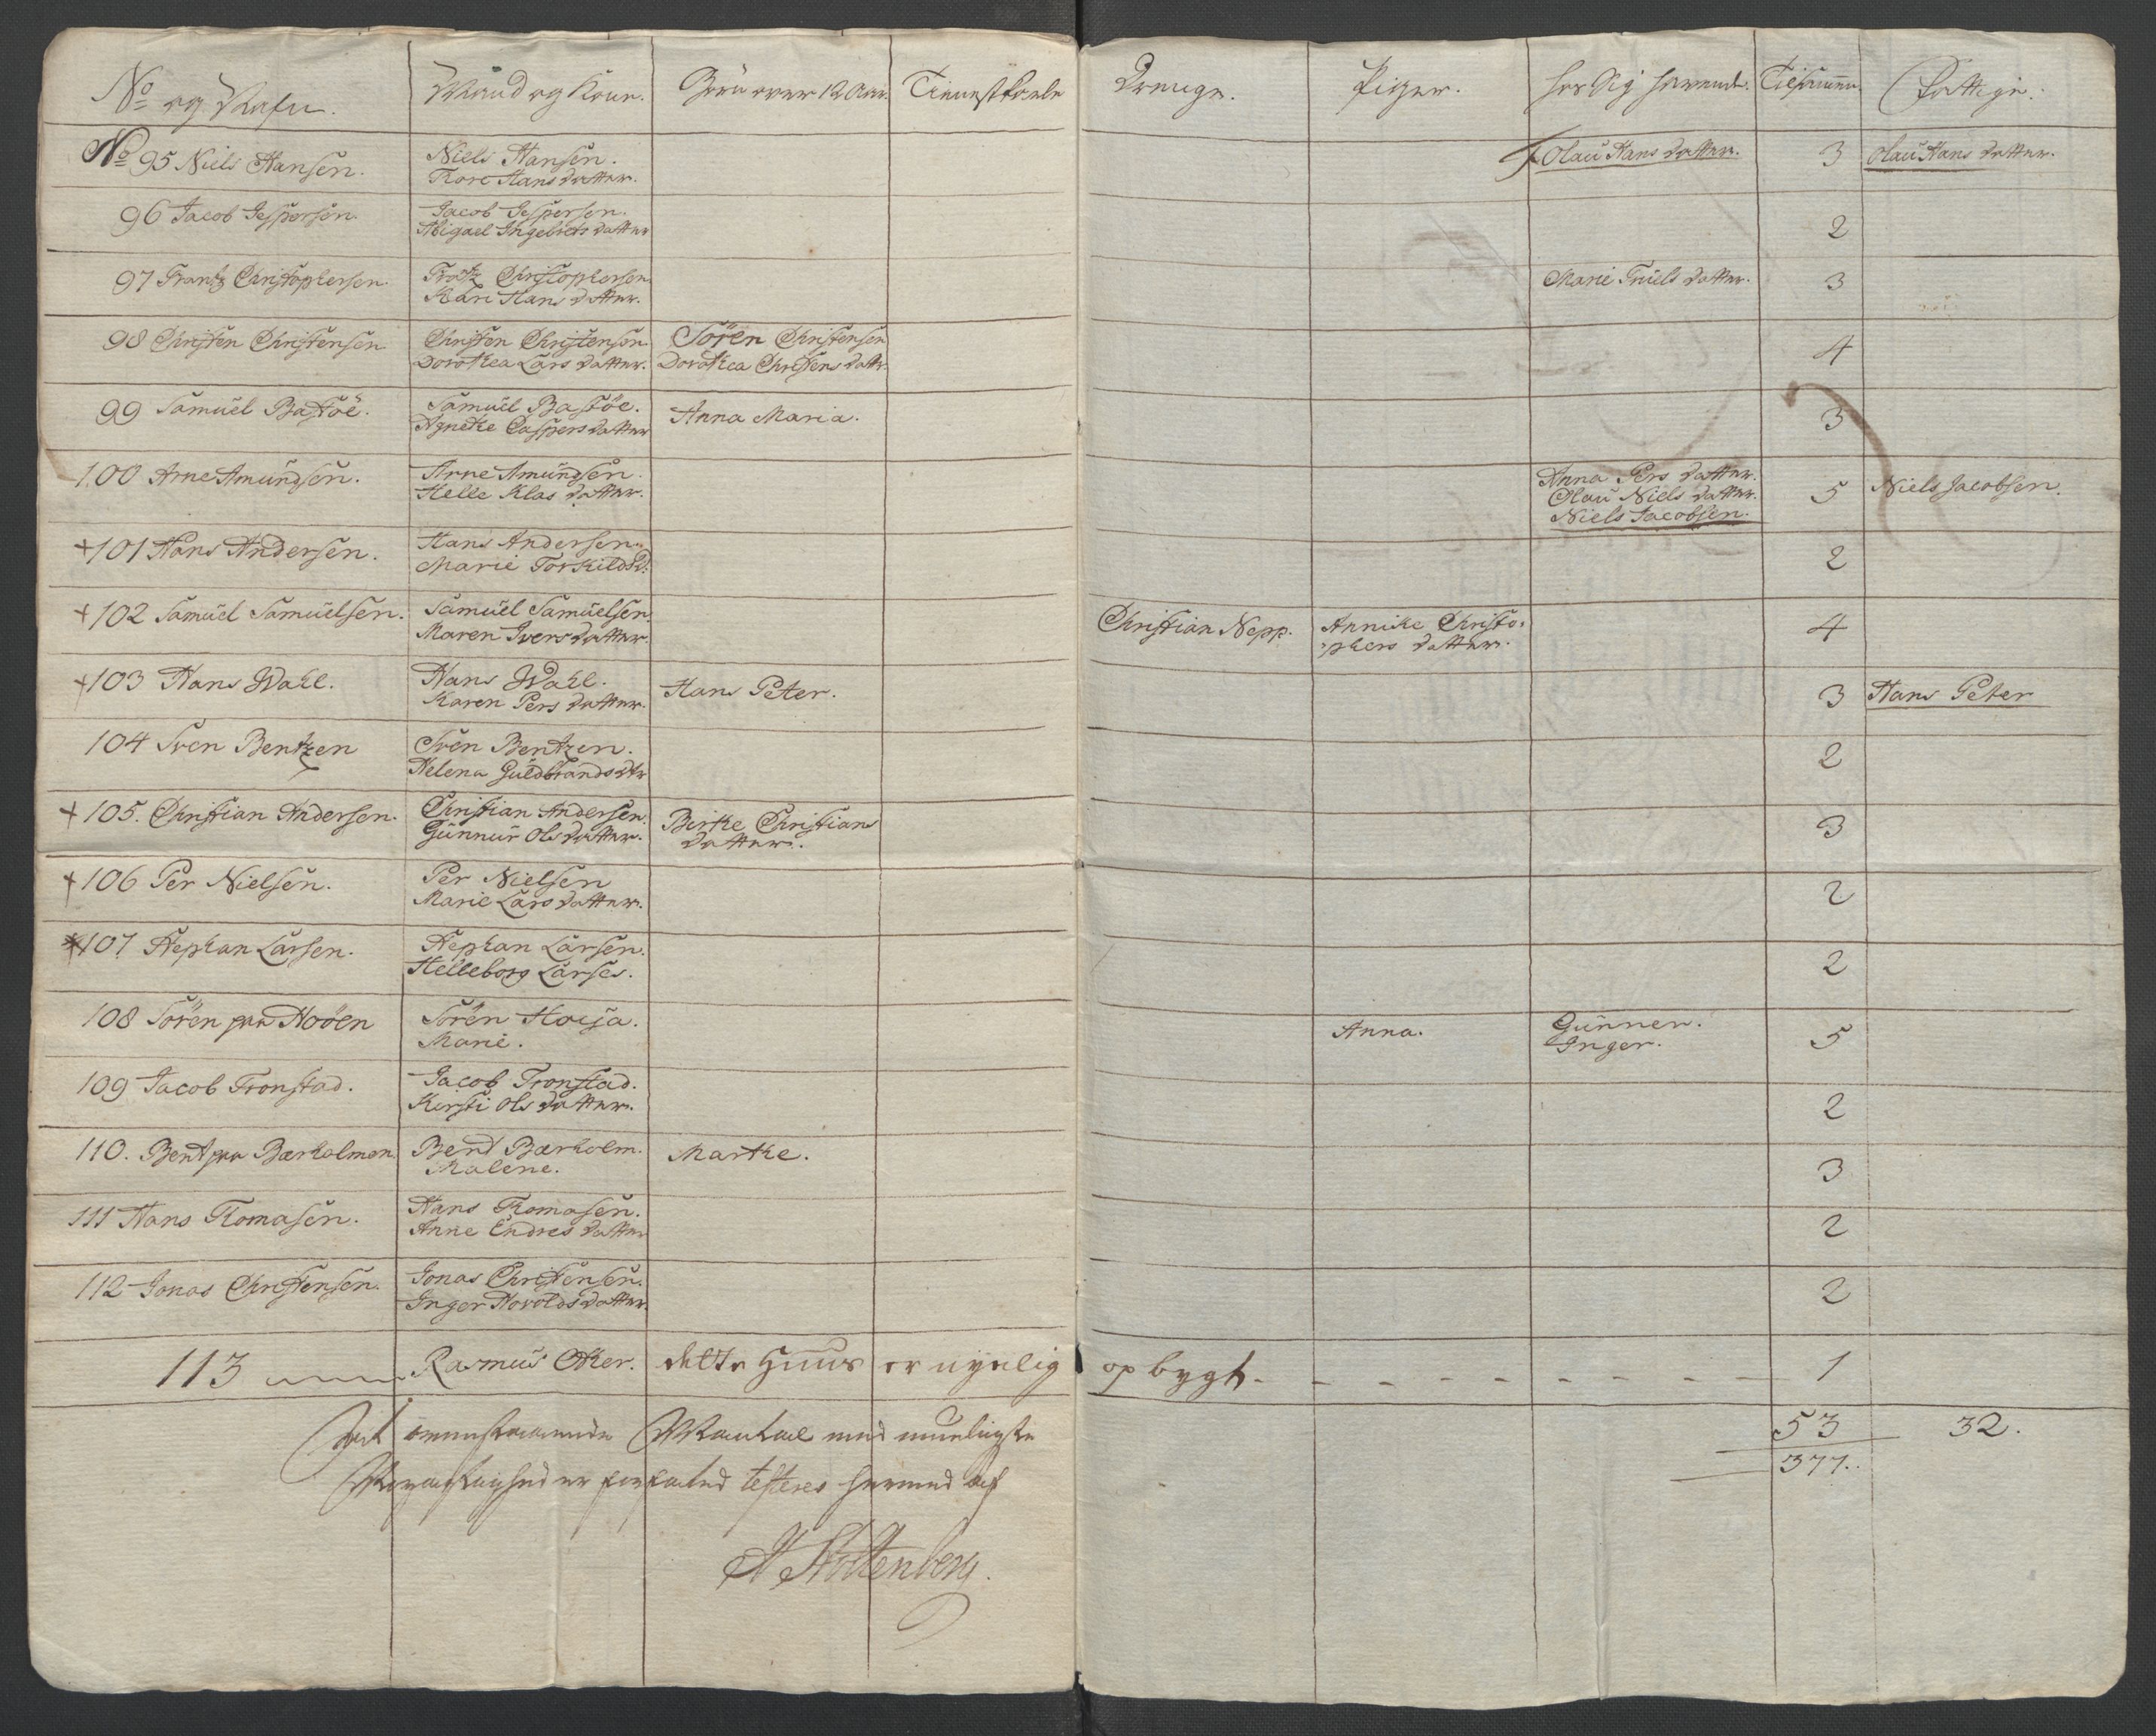 No og Nafn. Mand og Kone. Börn over 12 Aar. Tienestfolk Drenge. Piger. hos sig havende. Tilsammen Fattige.
No 95 Niels Hansen. Niels Hansen. Olau Hans datter. 3 Olau Hans datter.
Kore Hans datter.
96 Jacob Jespersen. Jacob Jespersen. 2
Abigael Ingebrets datter
97 Frantz Christophersen. Frantz Christophersen Marie Truels datter. 3
Kari Hans datter.
98 Christen Christensen Christen Christensen Sören Christensen 4
Dorothea Lars datter. Dorothea Christens datr.
99 Samuel Bastöe. Samuel Bastöe. Anna Maria. 3
Agnethe Caspers datter
100 Arne Amundsen. Arne Amundsen. Anna Pers datter. 5 Niels Jacobsen.
Helle Klas datter. Olau Niels datter.
Niels Jacobsen.
+101 Hans Andersen. Hans Andersen. 2
Marie Torkilds D:
+102 Samuel Samuelsen. Samuel Samuelsen. Christian Nepp. Annike Christo- 4
Maren Ivers datter. -phers datter.
+103 Hans Wahl. Hans Wahl. Hans Peter. 3 Hans Peter
Karen Pers datter.
104 Sven Bentzen Sven Bentzen. 2
Helena Guldbrands dtr
+105. Christian Andersen. Christian Andersen. Birthe Christians 3
Gunnur Ols datter. datter.
+106 Per Nielsen. Per Nielsen 2
Marie Lars datter.
+107 Stephan Larsen. Stephan Larsen. 2
Helleborg Larses.
108 Sören paa Hoöen Sören Hoeja. Anna. Gunner. 5
Marie. Inger.
109 Jacob Tronstad. Jacob Tronstad. 2
Kersti Ols datter.
110. Bent paa Bærholmen. Bend Bærholm. Marthe. 3
Malene.
111 Hans Thomasen. Hans Thomasen. 2
Anne Endres datter
112 Jonas Christensen. Jonas Christensen. 2
Inger Harolds datter.
113 Rasmus Other. dette Huus er nyelig opbygt. - - - - - - - - 1
At ovenstaaende Mantal med mueligste 53 32.
Nöyagtighed er forfatted testeres hermed af 377.
A Stoltenberg.